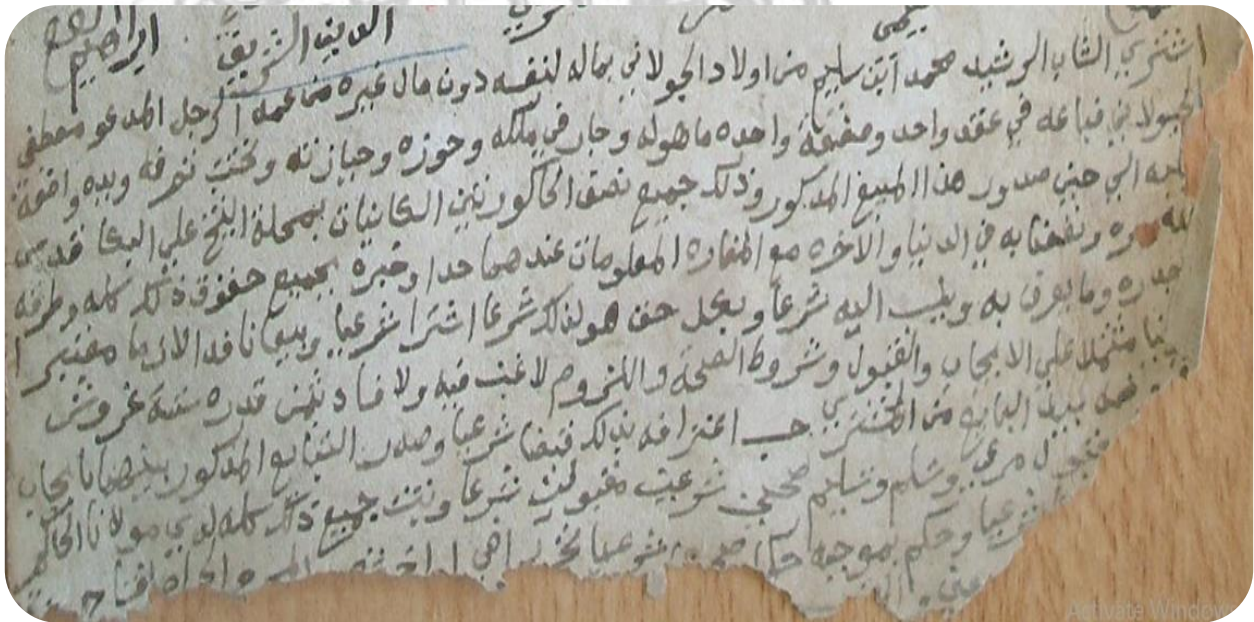 ابراهيم الدين الشريف
اشترى الشاب الرشيد محمد ابن سليم من اولاد الجولاني بماله لنفسه دون مال غيره من عمه الرجل المدعو مصطفى
الجولاني فباعه في عقد واحد وصفقة واحده ما هو له وجار في ملكه وحوزه وحيازته وتحت تصرفه ويده واضعة
عليه الى حين صدور هذا المبيع المذكور وذلك جميع نصف الحاكورتين الكائنتان بمحلة الشيخ علي البكا قدس
الله سره ونفعنا به في الدنيا والاخره مع المغاره المعلومات عندهما حدا وخبره بجميع حقوق ذلك كله وطرقه
وجدره وما يعرف به وينسب اليه شرعا وبكل حق هو لذلك شرعا اشترا شرعيا وبيعا نافدا لازما معتبر
مشتملا على الايجاب والقبول وشروط الصحة واللزوم لا غبن فيه ولا فساد بثمن قدره ستة غروش
بيد البايع من المشتري حسب اعترافه بذلك قبضا شرعيا وصدر التبايع المذكور بينهما بايجاب
وقبول مرعي وتسلم وتسليم صحيحين شرعيين مقبولين شرعا وثبت جميع ذلك كله لدى مولانا الحاكم
شرعيا وحكم بموجبه حكما شرعيا تحرير افي